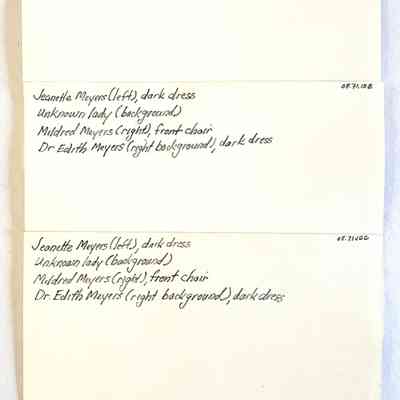 OF.71.10B
Jeanette Meyers (left), dark dress
Unknown lady (background)
Mildred Meyers (right), front chair
Dr Edith Meyers (right background), dark dress
Jeanette Meyers (left), dark dress
Unknown lady (background)
Mildred Meyers (right), front chair
Dr Edith Meyers (right background), dark dress